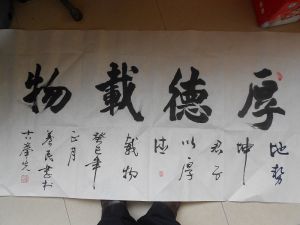 厚德載物
地勢
坤
君子
以厚
德
載物
癸巳年
正月
書於
古奉先